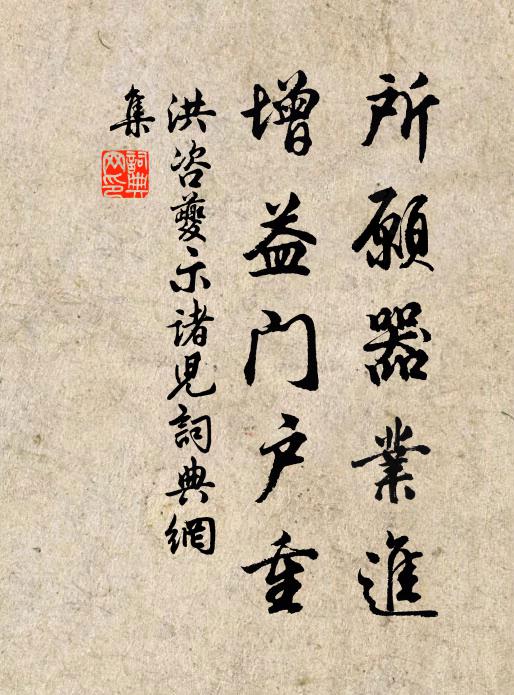 所願器業進
增益門戶重
洪咨夔示諸兒詞典網
集
詞典
网印